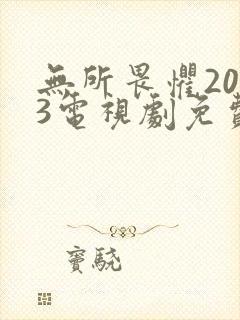 無所畏懼20
3電視劇免費
竇驍